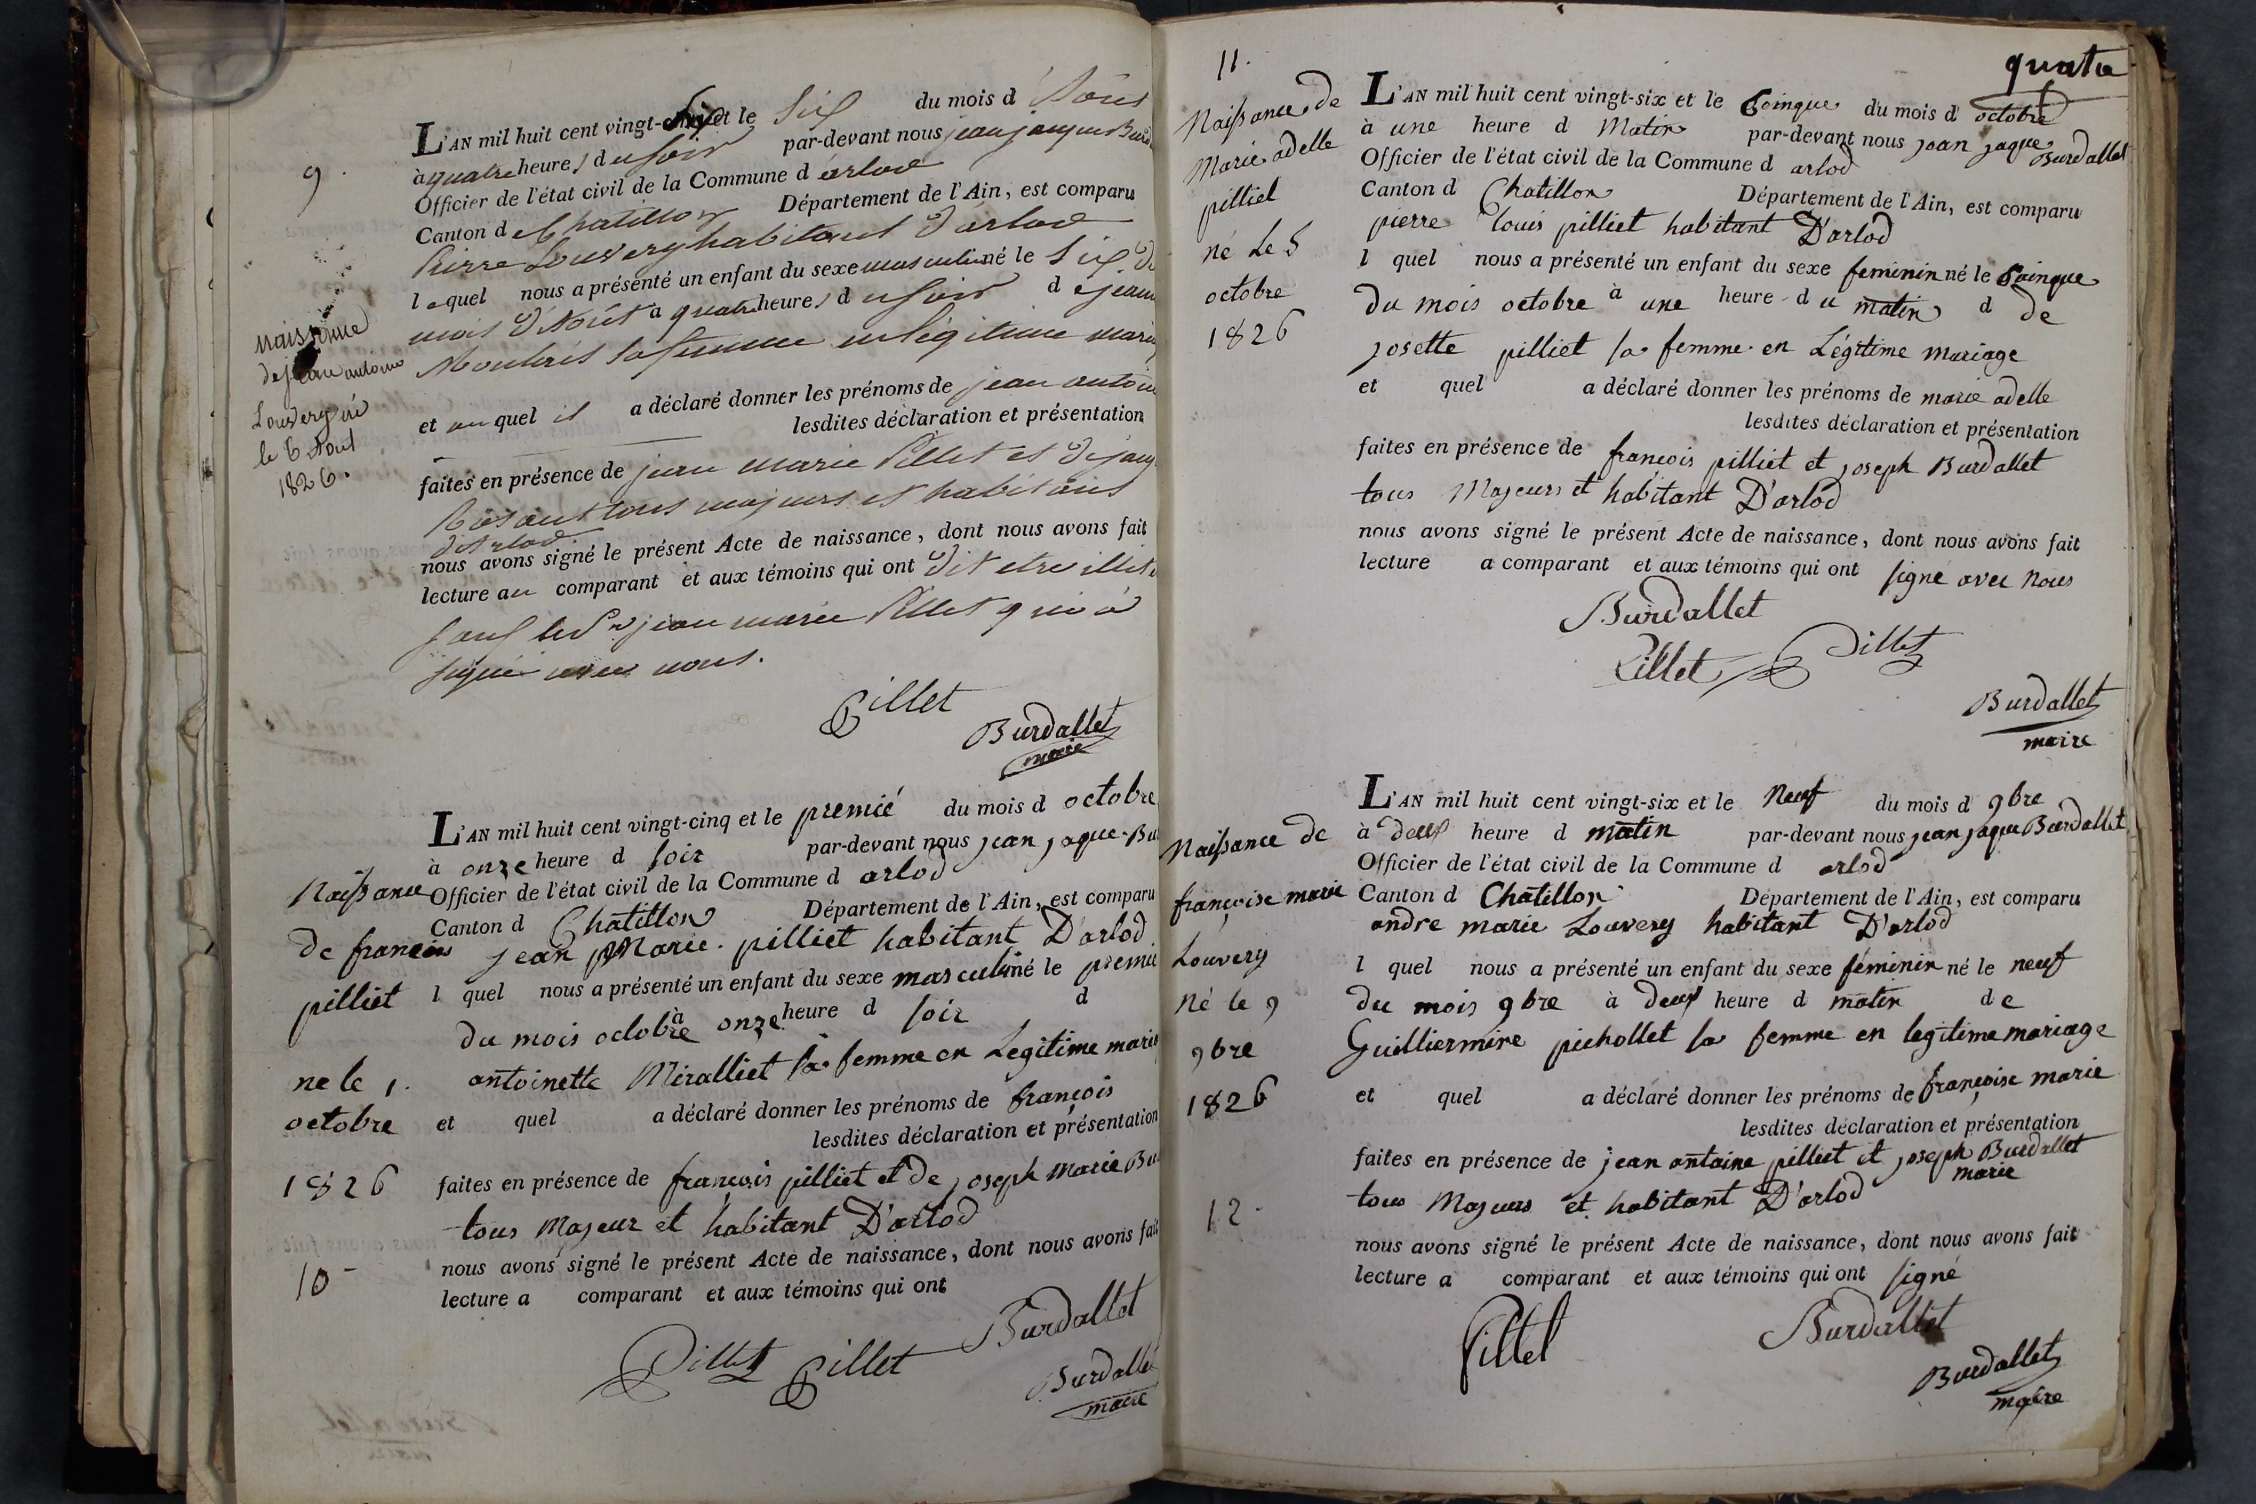 9.
Naissance
de jean antoine
Louvery né
le 6 Aout
1826.
L'AN mil huit cent vingt-six et le Six du mois d'Aout
à quatre heures du soir par-devant nous jean jacques Burd
Officier de l'état civil de la Commune d'arlod
Canton de Chatillon Département de l'Ain, est comparu
Pierre Louvery habitant d'arlod
lequel nous a présenté un enfant du sexe masculin né le Six du
mois d'Aout à quatre heures du soir de jeanne
sa femme en légitime maria
et auquel il a déclaré donner les prénoms de jean antoine
lesdites déclaration et présentation
faites en présence de jean marie Pillet et de
tous majeurs et habitans
d'Arlod.
nous avons signé le présent Acte de naissance, dont nous avons fait
lecture au comparant et aux témoins qui ont dit etre illité
sauf led. jean marie Pillet qui à
signé avec nous.
Pillet
Burdallet
maire
Naissance
de francois
pilliet
ne le 1.
octobre
1826
10
L'AN mil huit cent vingt-cinq et le premié du mois d octobre
à onze heure d soir par-devant nous jean jaque Bu
Officier de l'état civil de la Commune d arlod
Canton d Chatillon Département de l'Ain, est comparu
jean Marie pilliet habitant D'arlod
l quel nous a présenté un enfant du sexe masculin né le premié
du mois octobre à onze heure d soir d
antoinette Miralliet sa femme en Legitime maria
et quel a déclaré donner les prénoms de françois
lesdites déclaration et présentation
faites en présence de françois pilliet et de joseph marie Bu
tous Majeur et habitant D'arlod
nous avons signé le présent Acte de naissance, dont nous avons fait
lecture a comparant et aux témoins qui ont
Pillet Pillet Burdallet
Burdallet
maire
quatre
11.
Naissance de
Marie adelle
pilliet
né Le 5
octobre
1826
L'AN mil huit cent vingt-six et le Coinque du mois d octobre
à une heure d Matin par-devant nous jean jaque Burdallet
Officier de l'état civil de la Commune d arlod
Canton d Chatillon Département de l'Ain, est comparu
pierre louis pilliet habitant D'arlod
l quel nous a présenté un enfant du sexe feminin né le Coinque
du mois octobre à une heure du matin d de
josette pilliet sa femme en Légitime mariage
et quel a déclaré donner les prénoms de marie adelle
lesdites déclaration et présentation
faites en présence de françois pilliet et joseph Burdallet
tous Majeurs et habitant D'arlod
nous avons signé le présent Acte de naissance, dont nous avons fait
lecture a comparant et aux témoins qui ont signé avec nous
Burdallet
Pillet Pillet
Burdallet
maire
Naissance de
françoise marie
Louvery
né le 9
9bre
1826
12.
L'AN mil huit cent vingt-six et le Neuf du mois d 9bre
à deux heure d matin par-devant nous jean jaque Burdallet
Officier de l'état civil de la Commune d arlod
Canton d Chatillon Département de l'Ain, est comparu
andre marie Louvery habitant D'arlod
l quel nous a présenté un enfant du sexe féminin né le neuf
du mois 9bre à deux heure d matin de
Guilliermine pichollet sa femme en legitime mariage
et quel a déclaré donner les prénoms de françoise marie
lesdites déclaration et présentation
faites en présence de jean antoine pilliet et joseph marie Burdallet
tous Majeurs et habitant D'arlod
nous avons signé le présent Acte de naissance, dont nous avons fait
lecture a comparant et aux témoins qui ont signé
Pillet Burdallet
Burdallet
maire